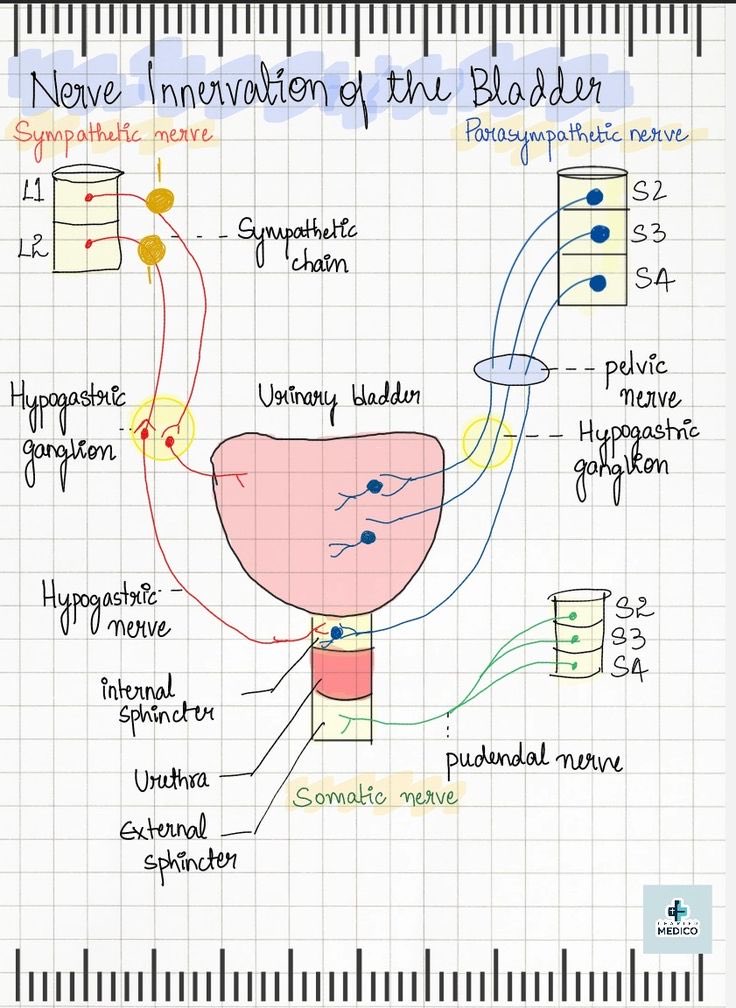 Nerve Innervation of the Bladder
Sympathetic nerve
Parasympathetic nerve
L1
L2
Sympathetic
chain
S2
S3
S4
pelvic
nerve
Hypogastric
ganglion
Urinary bladder
Hypogastric
ganglion
Hypogastric
nerve
S2
S3
S4
internal
sphincter
Urethra
External
sphincter
pudendal nerve
Somatic nerve
MEDICO